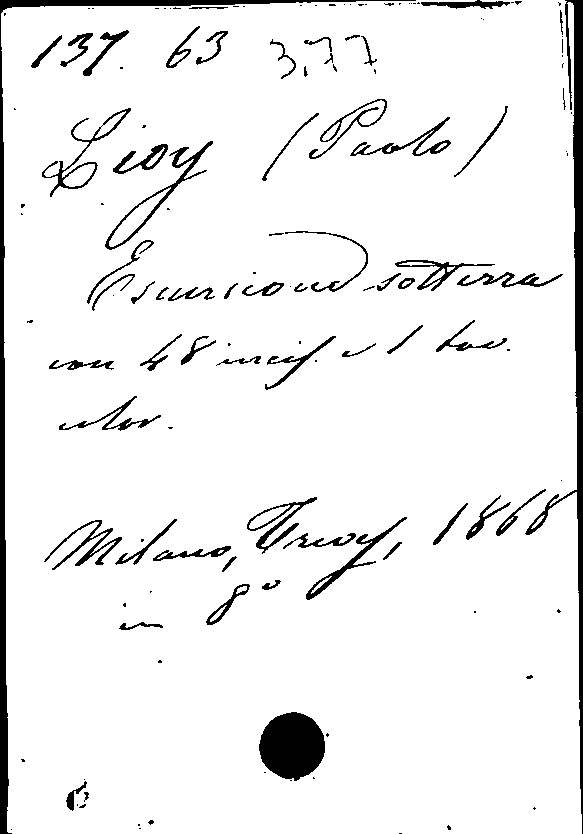 137. 63 3,77
Lioy (Paolo)
Escursione sotterra
con 48 incis. e 1 tav.
color.
Milano, Treves, 1868
in 8º